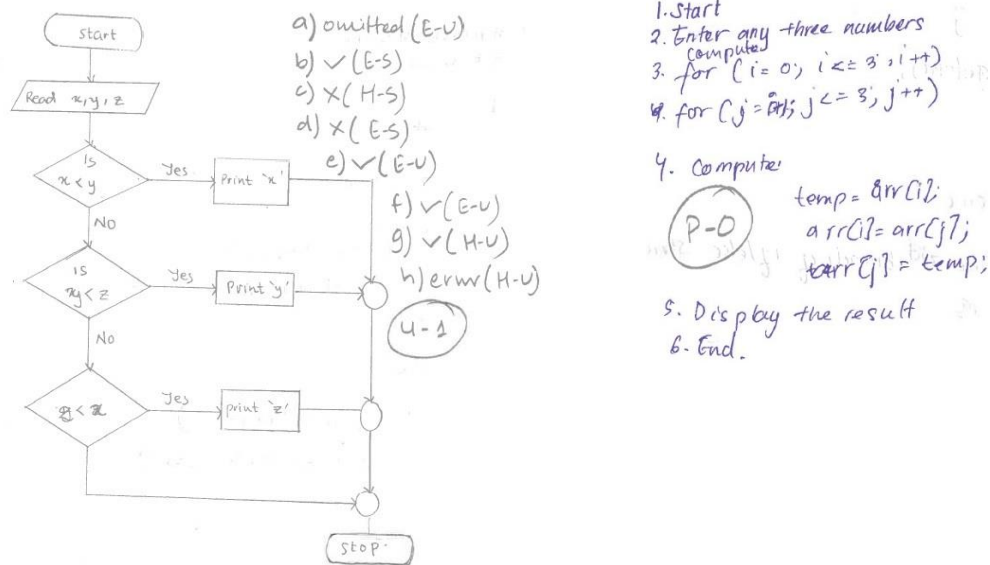 start
Read x, y, z
Is
x < y
Yes
Print 'x'
NO
Is
y < z
Yes
Print 'y'
No
Yes
print 'z'
stop.
a) omitted (E-U)
b) ✓ (E-S)
c) X (H-S)
d) X (E-S)
e) ✓ (E-U)
f) ✓ (E-U)
g) ✓ (H-U)
h) error (H-U)
U-1
1. Start
2. Enter any three numbers
compute
3. for (i = 0; i <= 3; i++)
4. for (j = 0; j <= 3; j++)
4. Compute
P-0
temp = arr[i];
arr[i] = arr[j];
arr[j] = temp;
5. Display the result
6. End.